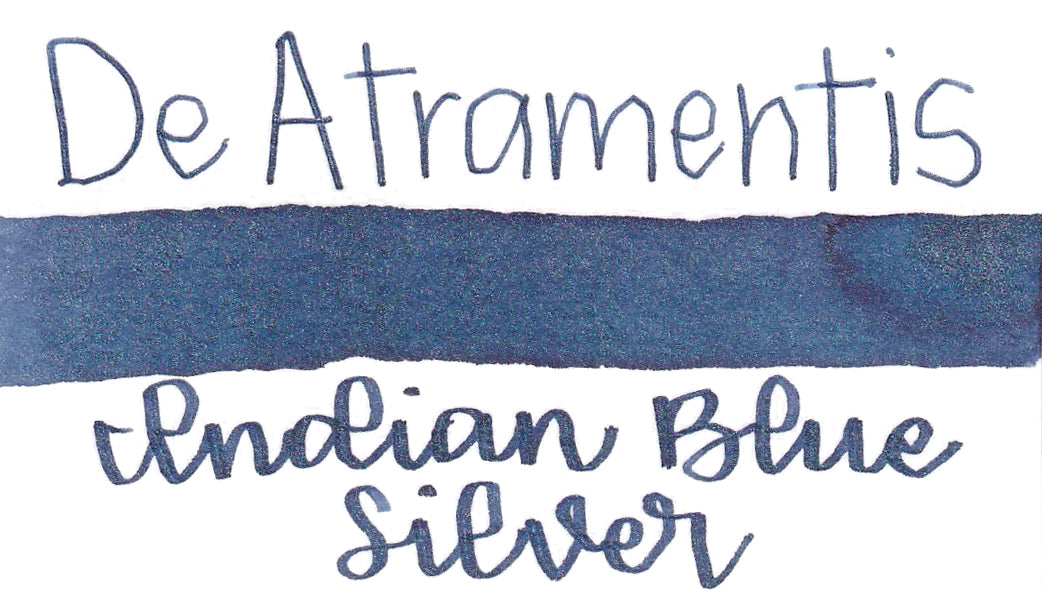 De Atramentis
Indian Blue
Silver